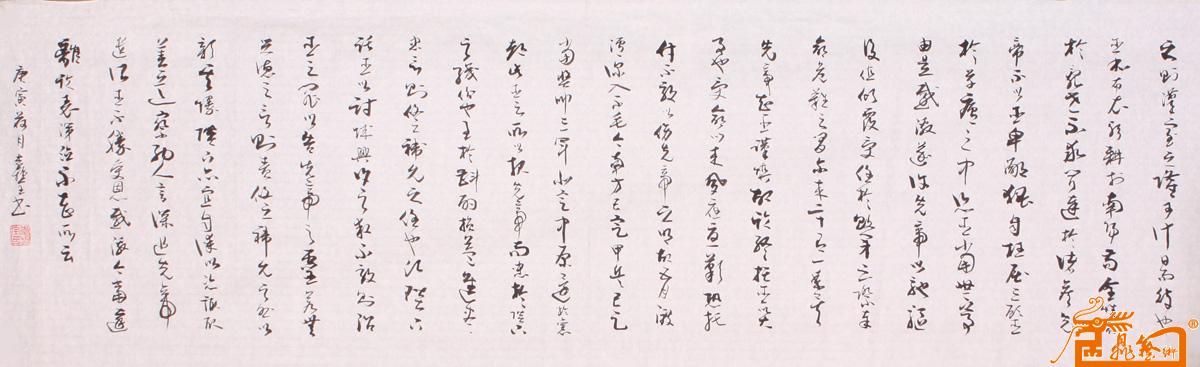 之則漢室之隆可計日而待也
臣本布衣躬耕於南陽苟全性命
於亂世不求聞達於諸侯先
帝不以臣卑鄙猥自枉屈三顧臣
於草廬之中諮臣以當世之事
由是感激遂許先帝以馳驅
後值傾覆受任於敗軍之際奉
命危難之間爾來二十有一年矣
先帝知臣謹慎故臨終托臣以大
事也受命以來夙夜憂嘆恐托
付不效以傷先帝之明故五月渡
瀘深入不毛今南方已定甲兵已足
當獎帥三軍北定中原還於舊
都此臣之所以報先帝而忠於陛下
之職分也至於斟酌損益進盡
忠言則攸之禕允之任也願陛下
託臣以討賊興復之效不效則治
臣之罪以告先帝之靈若無
興德之言則責攸之禕允之咎以
彰其慢陛下亦宜自謀以諮諏取
善道察納雅言深追先帝
遺詔臣不勝受恩感激今當遠
離臨表涕泣不知所云
庚寅荷月書